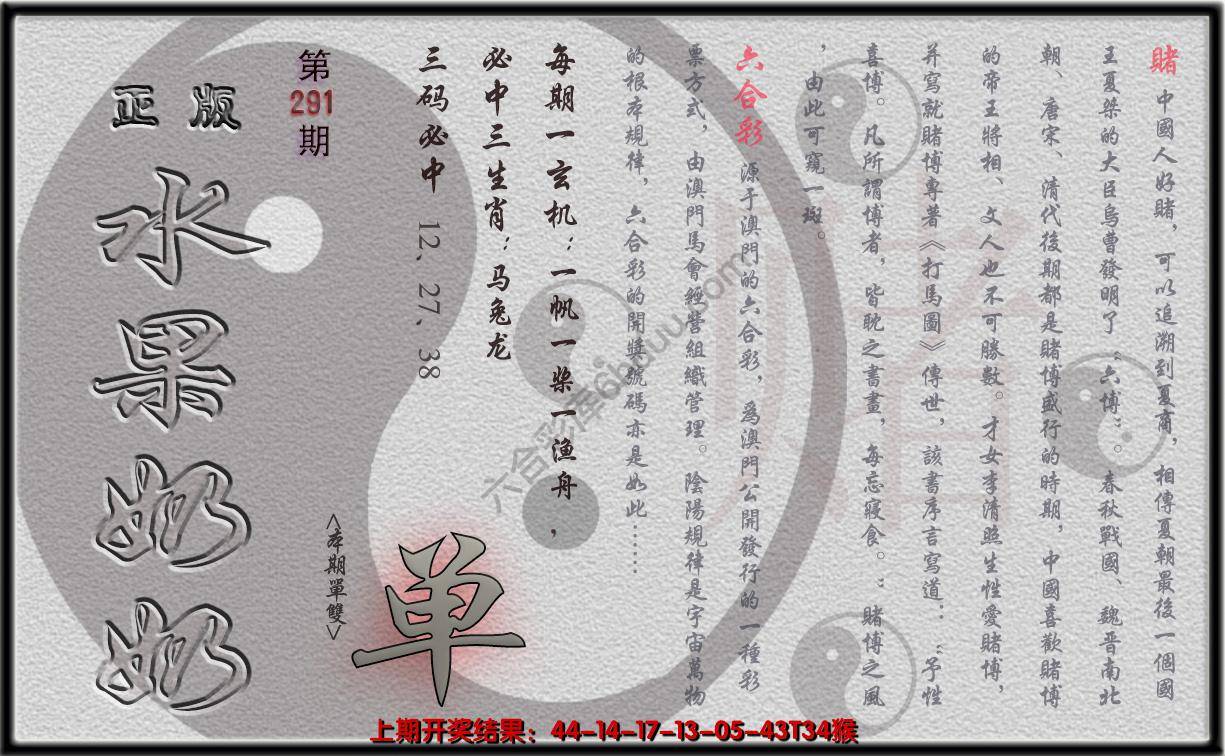 賭 中國人好賭，可以追溯到夏商，相傳夏朝最後一個國
王夏桀的大臣烏曹發明了“六博”。春秋戰國、魏晋南北
朝、唐宋、清代後期都是賭博盛行的時期，中國喜歡賭博
的帝王將相、文人也不可勝數。才女李清照生性愛賭博，
并寫就賭博專著《打馬圖》傳世，該書序言寫道：“予性
喜博。凡所謂博者，皆耽之書畫，每忘寢食。”賭博之風
，由此可窺一斑。
六合彩 源于澳門的六合彩，爲澳門公開發行的一種彩
票方式，由澳門馬會經營組織管理。陰陽規律是宇宙萬物
的根本規律，六合彩的開獎號碼亦是如此……
每期一玄机：一帆一桨一渔舟，
必中三生肖：马兔龙
三码必中 12、27、38
第
291
期
正版
水果奶奶
<本期單雙>
单
六合彩库6huuu.com
上期开奖结果：44-14-17-13-05-43T34猴